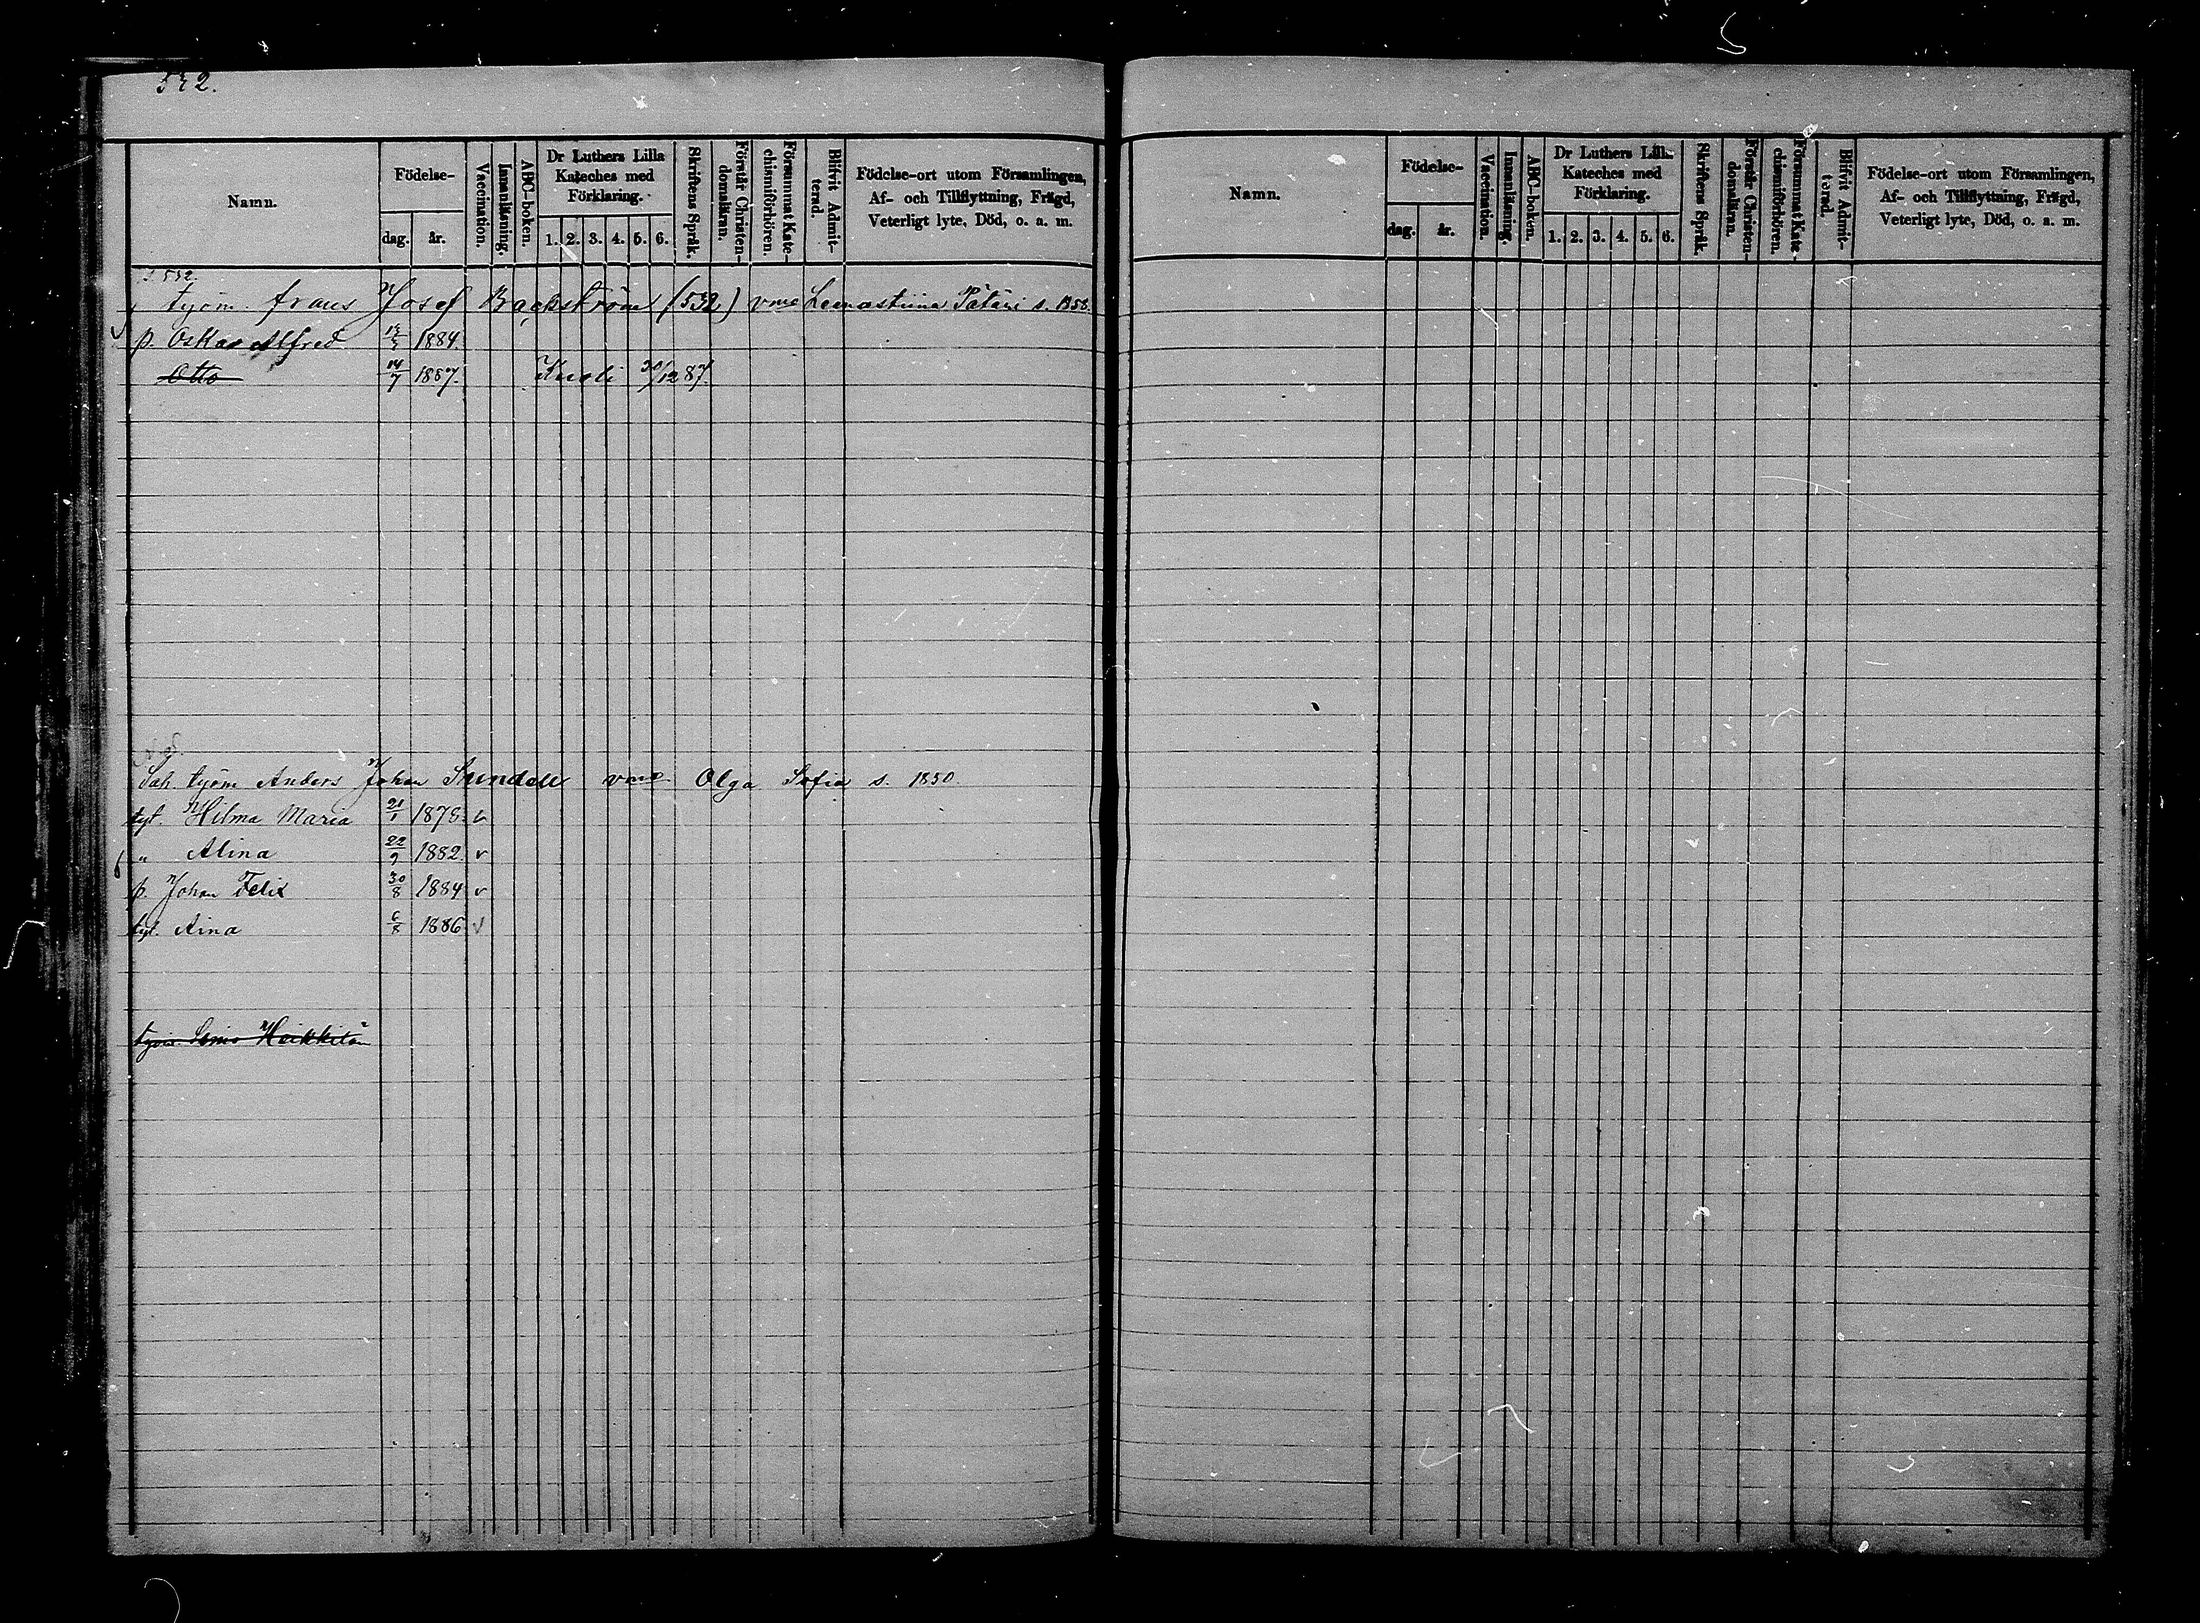 532.
Namn.
Födelse-
dag.
år.
Vaccination.
Innanläsning.
ABC-boken.
Dr Luthers Lilla
Kateches med
Förklaring.
1. 2. 3. 4. 5. 6.
Skriftens Språk.
Förstår Christen-
domsläran.
Försummat Kate-
chismiförhören.
Blifvit Admit-
terad.
Födelse-ort utom Församlingen,
Af- och Tillflyttning, Frägd,
Veterligt lyte, Död, o. a. m.
532.
työm. Frans Josef Backström (532) vmo Leenastiina Pätäri s. 1858.
p. Oskar Alfred 1884.
Otto 14/7 1887. Kuoli 30/12 87.
työm Anders Johan Sundell vmo Olga Sofia s. 1850.
tyt. Hilma Maria 21/1 1878. v
" Alina 22/9 1882. v
p. Johan Felix 30/8 1884 v
tyt. Aina 6/8 1886 v
Namn.
Födelse-
dag.
år.
Vaccination.
Innanläsning.
ABC-boken.
Dr Luthers Lilla
Kateches med
Förklaring.
1. 2. 3. 4. 5. 6.
Skriftens Språk.
Förstår Christen-
domsläran.
Försummat Kate-
chismiförhören.
Blifvit Admit-
terad.
Födelse-ort utom Församlingen,
Af- och Tillflyttning, Frägd,
Veterligt lyte, Död, o. a. m.